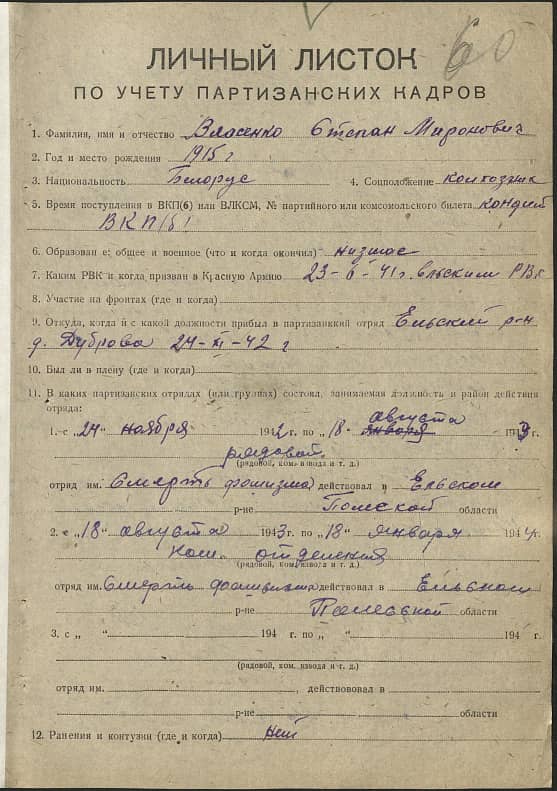 60
ЛИЧНЫЙ ЛИСТОК
ПО УЧЕТУ ПАРТИЗАНСКИХ КАДРОВ
1. Фамилия, имя и отчество Власенко Степан Миронович
2. Год и место рождения 1915 г
3. Национальность Белорус 4. Соцположение колхозник
5. Время поступления в ВКП(б) или ВЛКСМ, № партийного или комсомольского билета кандид
ВКП(б)
6. Образование: общее и военное (что и когда окончил) низшее
7. Каким РВК и когда призван в Красную Армию 23-6-41г. Ельским РВК
8. Участие на фронтах (где и когда)
9. Откуда, когда и с какой должности прибыл в партизанский отряд Ельский р-н
д. Дуброва 24-XI-42 г
10. Был ли в плену (где и когда)
11. В каких партизанских отрядах (или группах) состоял, занимаемая должность и район действия
отряда:
августа
1. с „24" ноября 1942 г. по „18" января 1943 г.
рядовой
(рядовой, ком. взвода и т. д.)
отряд им. Смерть фашизма действовал в Ельском
р-не Полесской области
2. с „18" августа 1943 г. по „18" января 1944 г.
Ком. отделения
(рядовой, ком. взвода и т. д.)
отряд им. Смерть фашизма действовал в Ельском
р-не Полесской области
3. с „ " 194 г. по „ " 194 г.
(рядовой, ком. взвода и т. д.)
отряд им. , действовал в
р-не области
12. Ранения и контузии (где и когда) нет